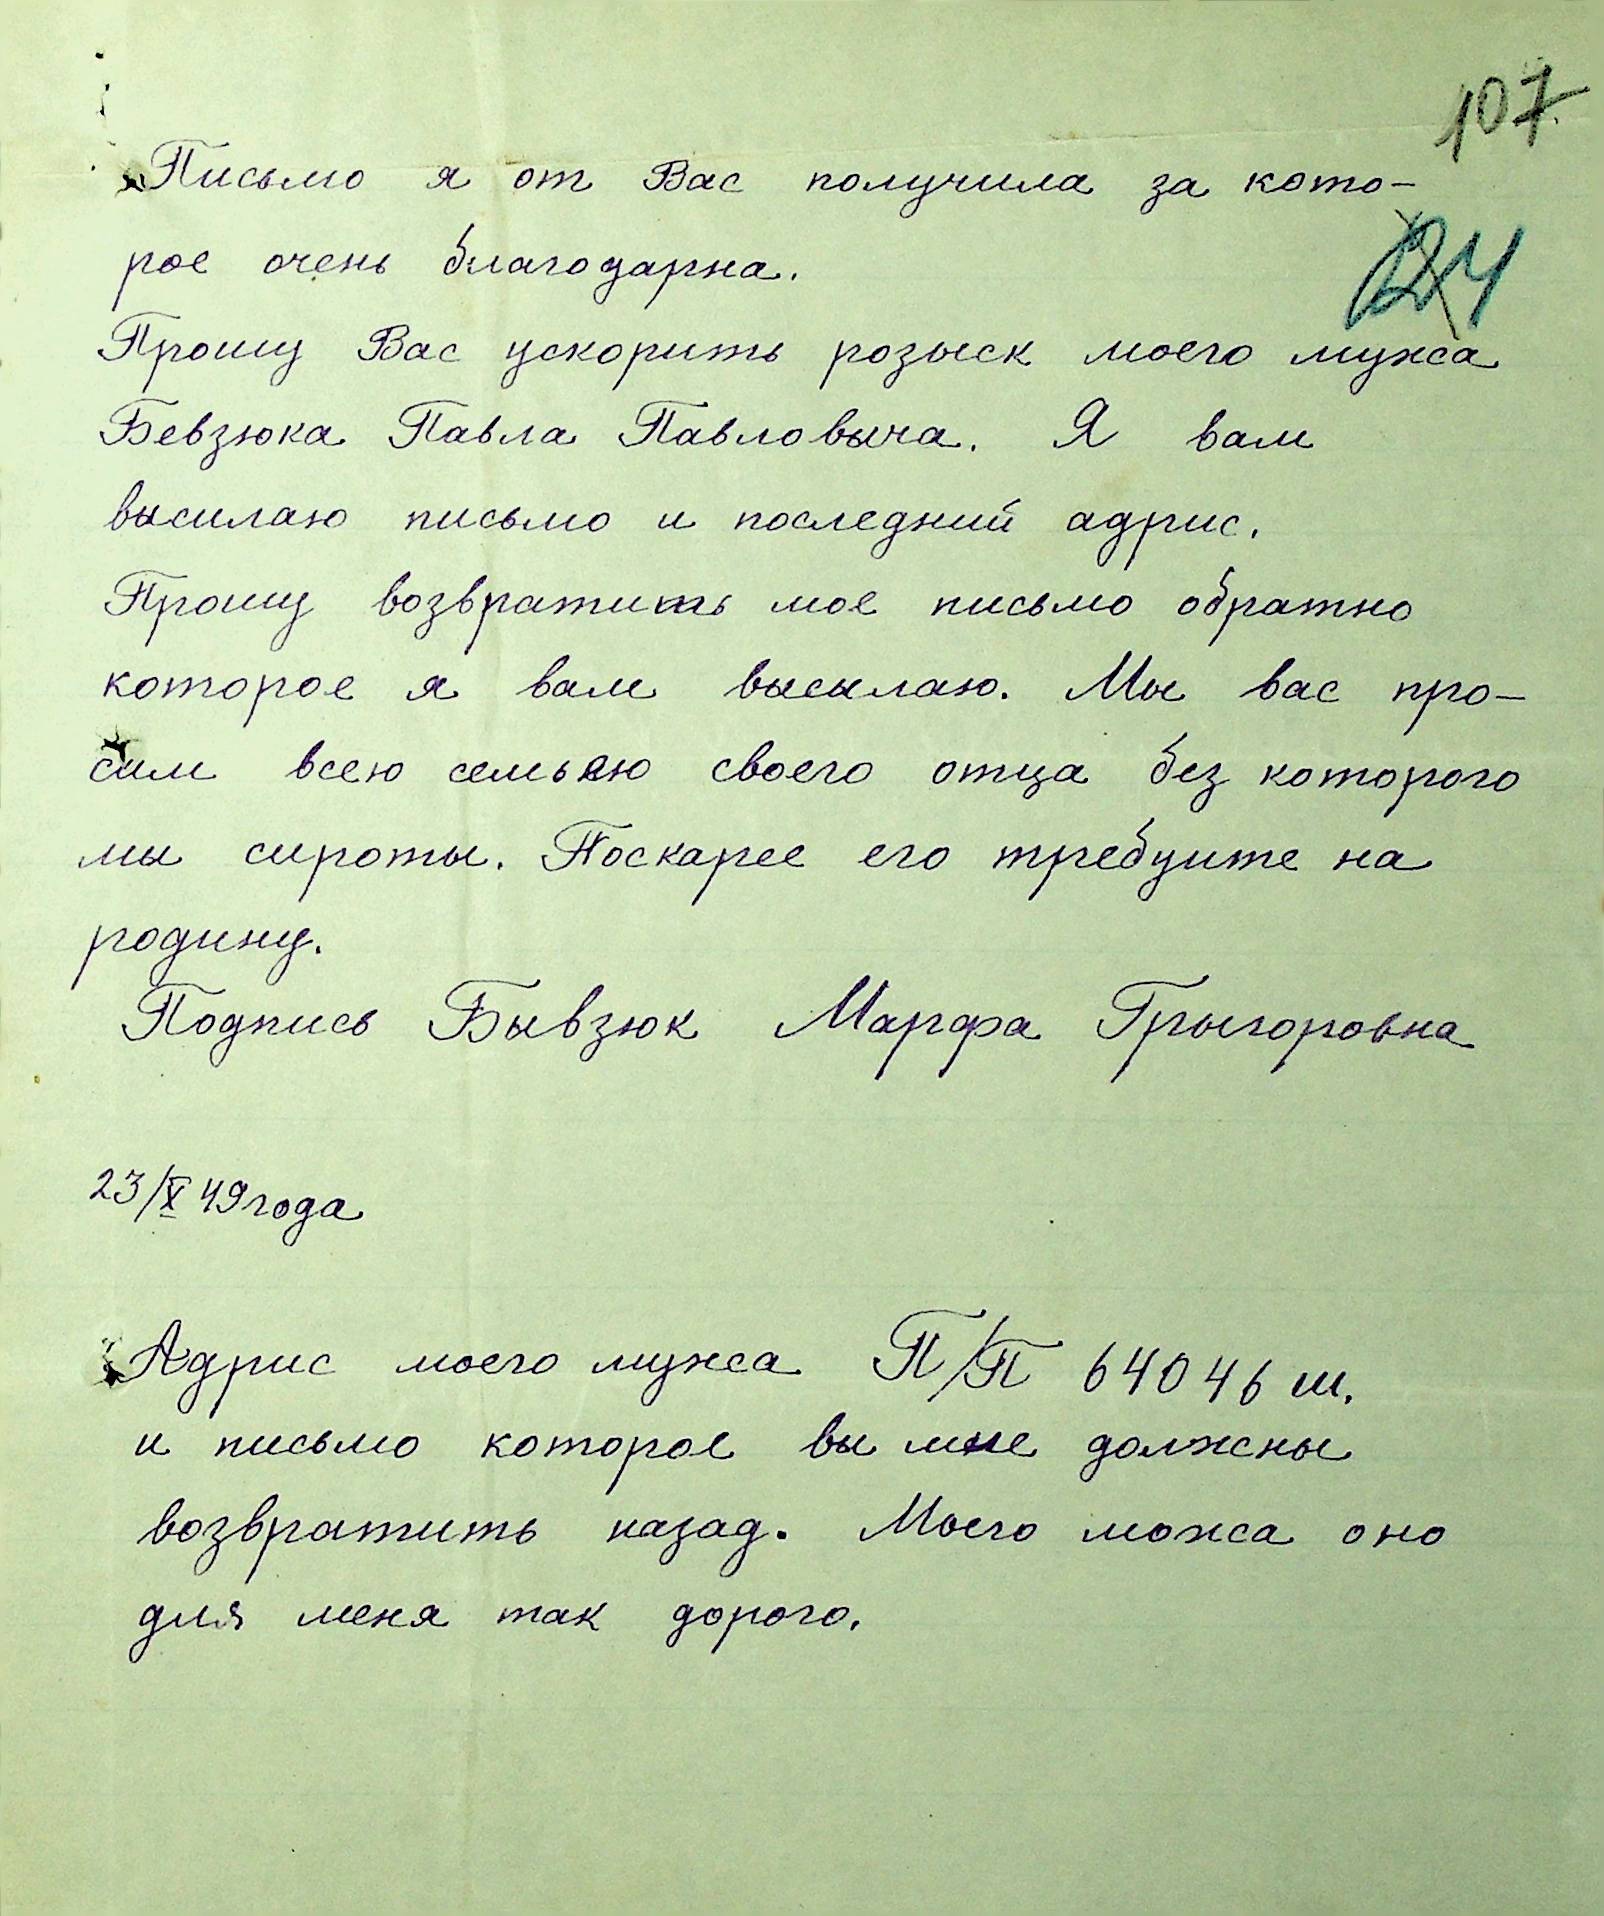 107
Письмо я от Вас получила за кото-
рое очень благодарна.
24
Прошу Вас ускорить розыск моего мужа
Бевзюка Павла Павловыча. Я вам
высилаю письмо и последний адрис.
Прошу возвратить мое письмо обратно
которое я вам высылаю. Мы вас про-
сим всею семьяю своего отца без которого
мы сироты. Поскарее его требуите на
родину.
Подпись Бывзюк Марфа Грыгоровна
23/X 49 года
Адрис моего мужа П/П 64046 ш.
и письмо которое вы мне должны
возвратить назад. Моего можа оно
для меня так дорого.